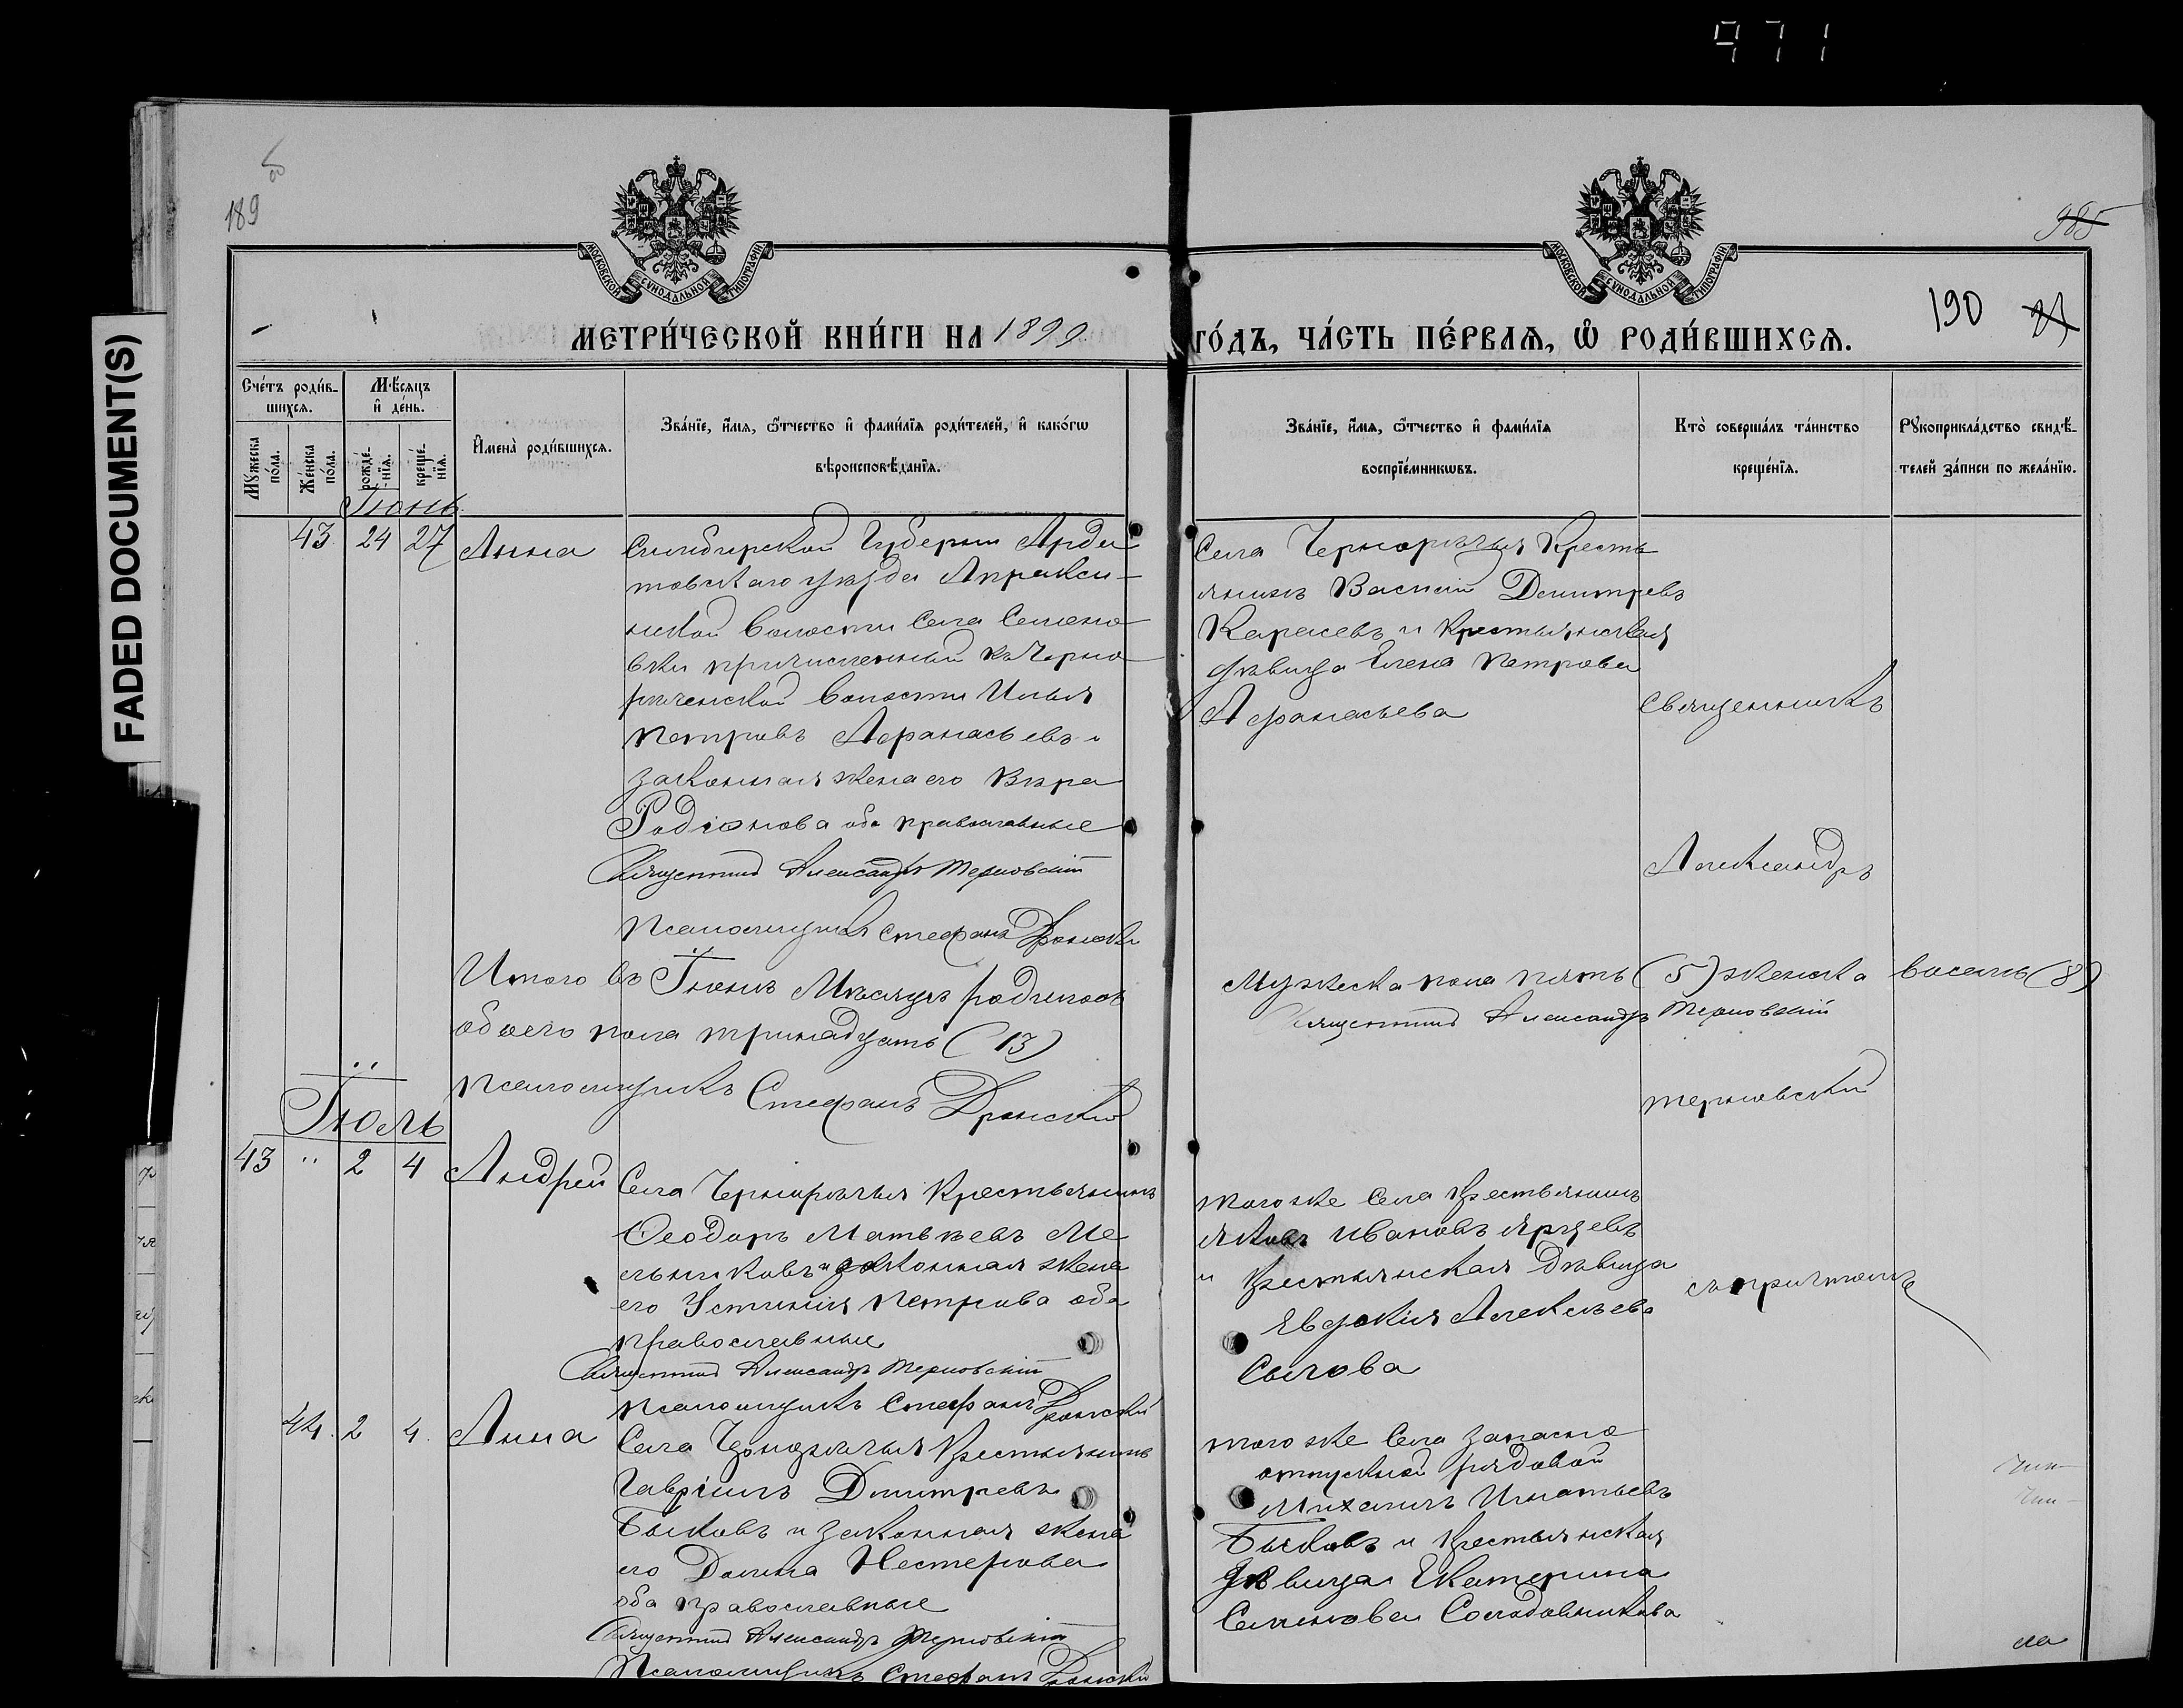 471
FADED DOCUMENT(S)
189 об
985
МОСКОВСКОЙ СУНОДАЛЬНОЙ ТИПОГРАФІИ
МОСКОВСКОЙ СУНОДАЛЬНОЙ ТИПОГРАФІИ
190 21
МЕТРИ́ЧЕСКОЙ КНИ́ГИ НА 1899
ГО́ДЪ, ЧА́СТЬ ПЕ́РВАѦ, Ѿ РОДИ́ВШИХСѦ.
Сче́тъ роди́в-
шихсѧ.
Мѣ́сяцъ
и҆ де́нь.
Му́жеска по́ла.
Же́нска по́ла.
рожде́-нїѧ.
креще́-нїѧ.
И҆мена̀ роди́вшихсѧ.
Зва́нїе, и҆́мѧ, ѻ҆́тчество и҆ фами́лїѧ роди́телей, и҆ како́гѡ
вѣроисповѣ́данїѧ.
Зва́нїе, и҆́мѧ, ѻ҆́тчество и҆ фами́лїѧ
воспрїе́мникѡвъ.
Кто̀ соверша́лъ та́инство
креще́нїѧ.
Рꙋкоприкла́дство свидѣ́-
телей за́писи по жела́нїю.
Іюнь
43 24 27 Анна
Симбирской Губерніи Арда-
товскаго уѣзда Апракси-
нской волости села Семено-
вки причисленный къ Черно-
рѣченской волости Илья
Петровъ Афанасьевъ и
законная жена его Вѣра
Родіонова оба православные
Священникъ Александръ Терновскій
Псаломщикъ Стефанъ Дронскій
Села Чернорѣчья Кресть-
янинъ Василій Димитревъ
Карасевъ и крестьянская
дѣвица Елена Петрова
Афанасьева
Священникъ
Александръ
Итого въ Іюнѣ Мѣсяцѣ родилось
обоего пола тринадцать (13)
Псаломщикъ Стефанъ Дронскій
Мужеска пола пять (5) женска восемь (8)
Священникъ Александръ Терновскій
Терновскій
Іюль
43 " 2 4 Андрей
Села Чернорѣчья Крестьянинъ
Ѳеодоръ Матвѣевъ Ме-
льниковъ и законная жена
его Устинія Петрова оба
православные
Священникъ Александръ Терновскій
Псаломщикъ Стефанъ Дронскій
того же села крестьянинъ
Яковъ Ивановъ Ярцевъ
и крестьянская дѣвица
Евдокія Алексѣева
Сычова
съ причтомъ
44. 2 4. Анна
Села Чернорѣчья Крестьянинъ
Гавріилъ Димитревъ
Бычковъ и законная жена
его Домна Нестерова
оба православные
Священникъ Александръ Терновскій
Псаломщикъ Стефанъ Дронскій
того же села запасно-
отпускной рядовой
Михаилъ Игнатьевъ
Бычковъ и крестьянская
дѣвица Екатерина
Семенова Солодовникова